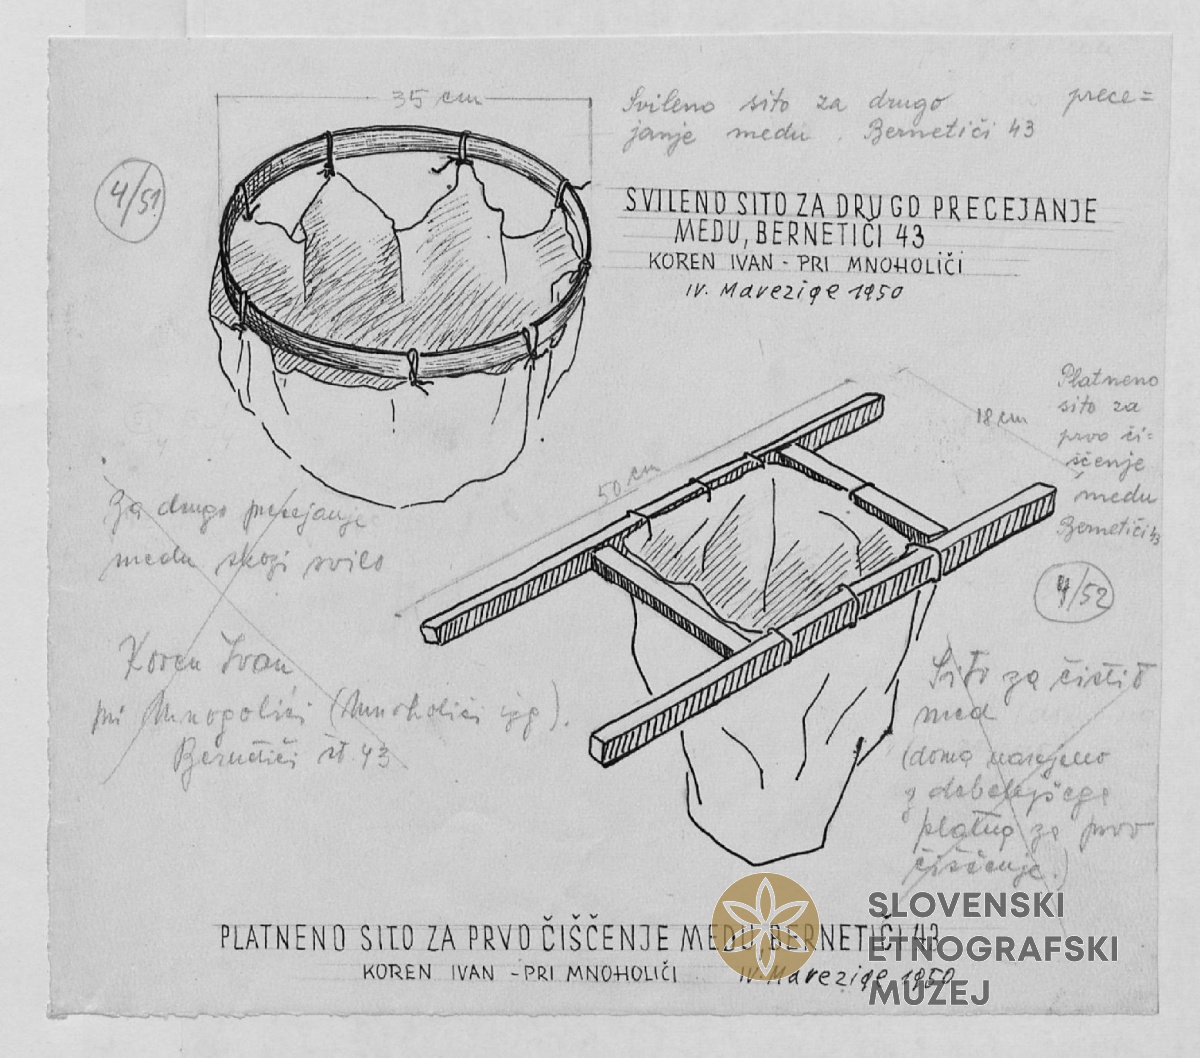 35 cm
Svileno sito za drugo prece=
janje medu. Bernetiči 43
4/51
SVILENO SITO ZA DRUGO PRECEJANJE
MEDU, BERNETIČI 43
KOREN IVAN - PRI MNOHOLIČI
IV. Marezige 1950
Platneno
sito za
prvo či=
ščenje
medu
Bernetiči 43
18 cm
50 cm
Za drugo precejanje
medu skozi svilo
4/52
Koren Ivan
pri Mnogolići (Mnoholići izg).
Bernetiči št. 43
Sito za čistit
med
(doma narejeno
z debelejšega
platna za prvo
čiščenje.)
PLATNENO SITO ZA PRVO ČIŠČENJE MEDU, BERNETIČI 43
KOREN IVAN - PRI MNOHOLIČI IV. Marezige 1950
SLOVENSKI
ETNOGRAFSKI
MUZEJ